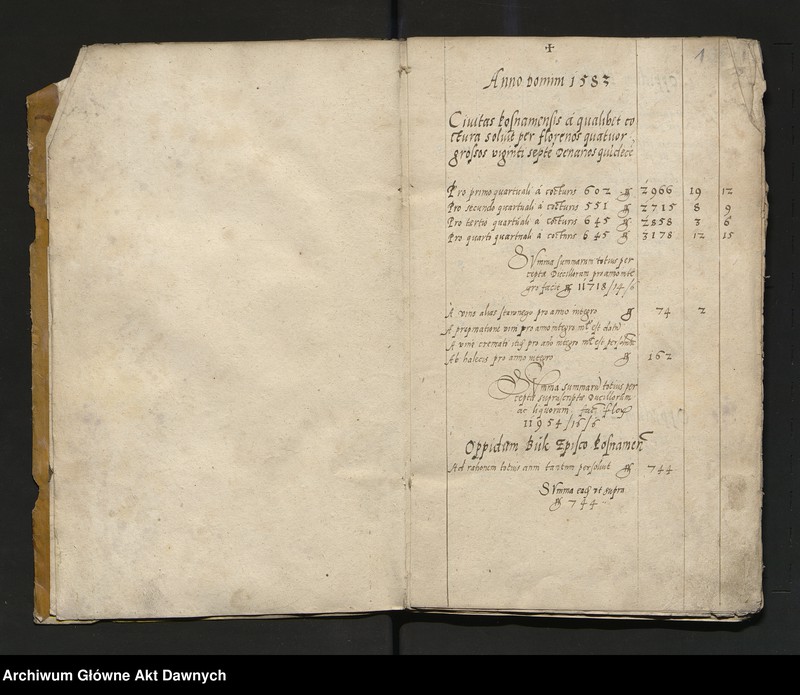 1
Anno Domini 1583
Ciuitas Posnaniensis á qualibet co
ctura soluit per florenos quatuor
grossos viginti septē Denarios quīdecē
Pro primo quartuali á cocturis 602 2966 19 12
Pro secundo quartuali á cocturis 551 2715 8 9
Pro tertio quartuali á cocturis 2858 3 6
Pro quarto quartuali á cocturis 645 3178 12 15
Summa summarum totius per
cepta Ducillorum pro anno inte
gro facit 11718/14/6
pro anno integro 74 2
A propinatione vini pro anno integro nil est datū
A vino cremati pro anno integro nil est
Ab halecis pro anno integro 162
Summa summarū totius per
cepta suprascripta Ducillorum
ac liquorum facit
11954/16/6
Oppidum Buk Episco Posnanien
Ad rationem totius anni tantum persoluit 744
Summa vt supra
744
Archiwum Główne Akt Dawnych